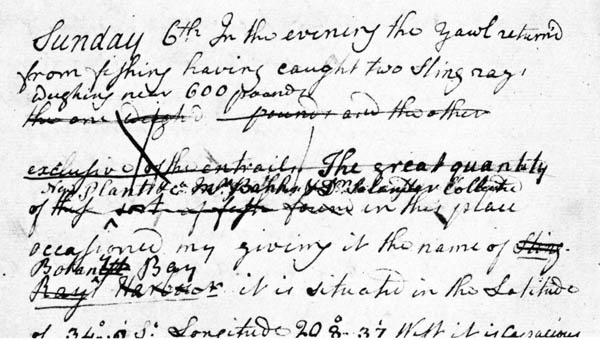 Sunday 6th In the evening the Yawl return'd
from fishing having caught two Sting rays
weighing near 600 pounds
the one weigh'd pounds and the other
exclusive of the entrails. The great quantity
New Plants &c Mr Banks & Dr Solander collected
of these sort of fish found in this place
occasioned my giving it the name of Sting
Botany Bay
Ray Harbour it is situated in the Latitude
of 34°..0 St. Longitude 208..37 West it is Capacious